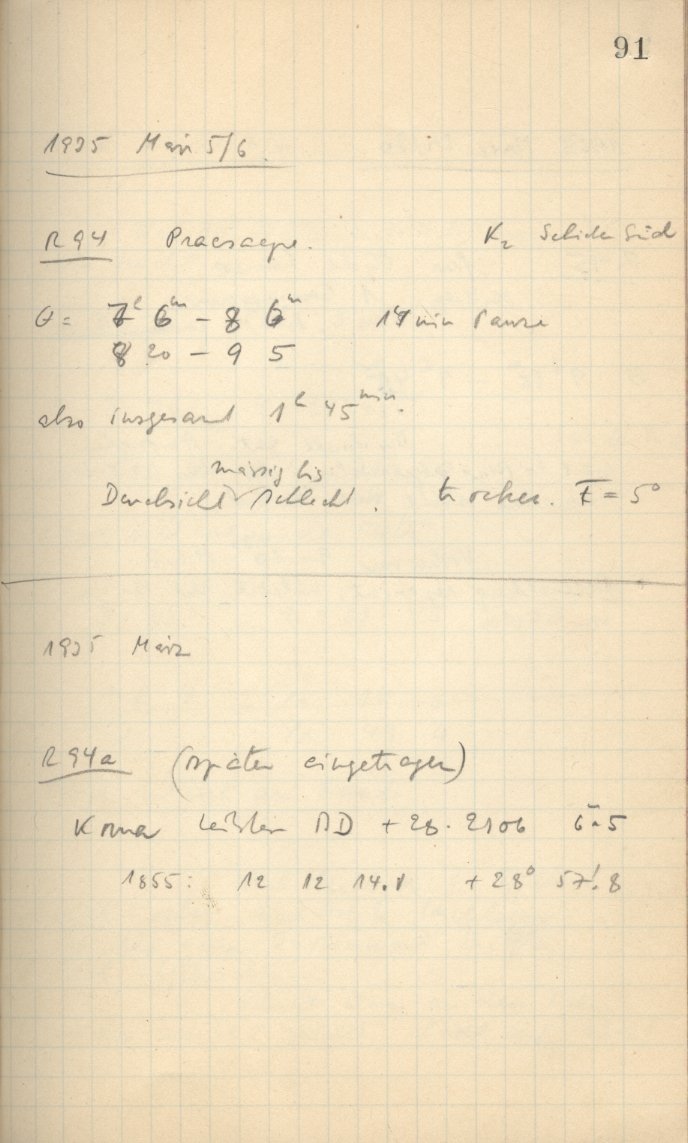 91
1935 März 5/6.
R 94 Praesaepe. K₂ Schicht Süd
θ = 7ʰ 6ᵐ – 8 6ᵐ 14 min Pause
8 20 – 9 5
also insgesamt 1ʰ 45ᵐⁱⁿ.
mässig bis
Durchsicht schlecht. trocken. = 5°
1935 März
R 94a (später eingetragen)
Koma Leitstern BD +28.2106 6ᵐ5
1855: 12 12 14.1 +28° 57!8